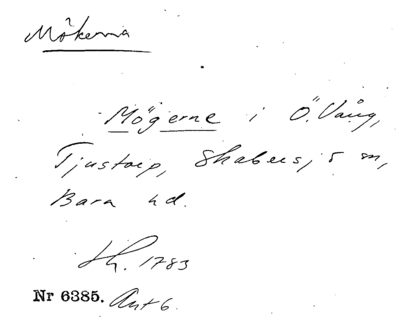 Mökerna
Mögerne i Ö. Vång,
Tjustorp, Skabersjö sn,
Bara hd.
Lh. 1783
Nr 6385. Ant 6.